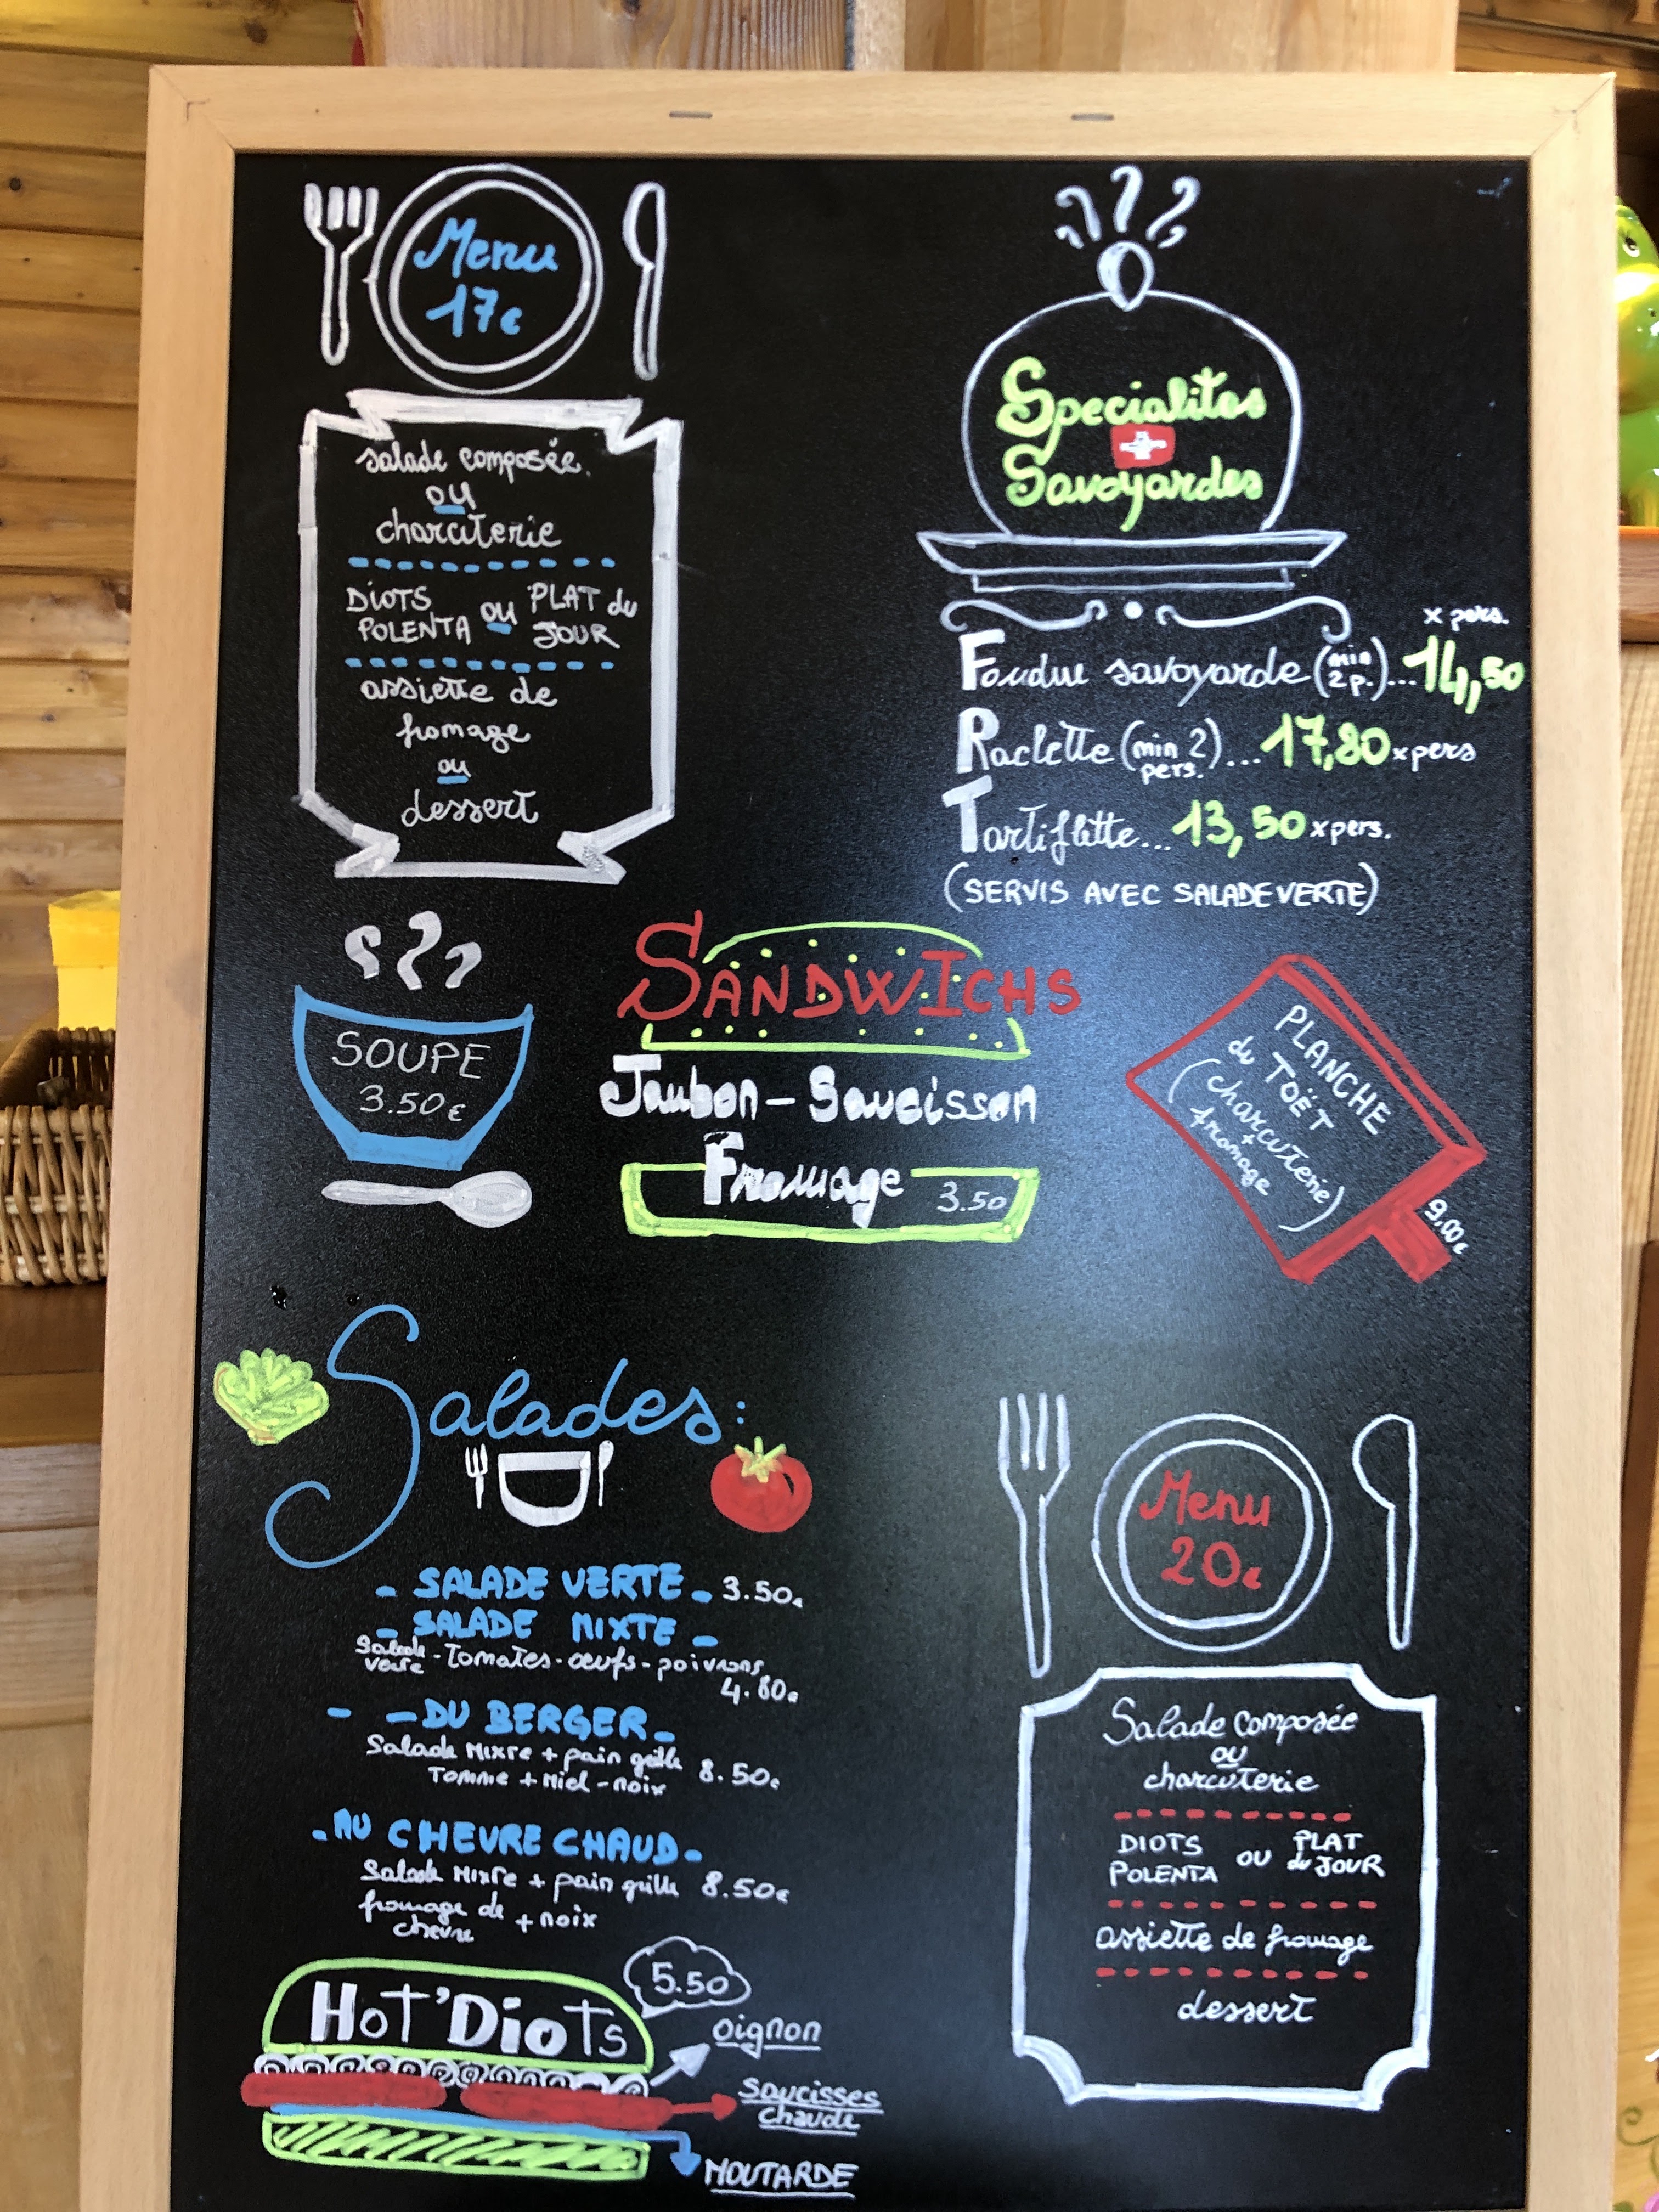 Menu
17€
salade composée
ou
charcuterie
DiOTS POLENTA ou PLAT du JOUR
assiette de
fromage
ou
dessert
Specialites
Savoyardes
x pers.
Fondue savoyarde (min 2 p.)...14,50
Raclette (min 2 pers.)...17,80 x pers
Tartiflette...13,50 x pers.
(SERVIS AVEC SALADE VERTE)
SOUPE
3.50€
SANDWICHS
Jambon - Saucisson
Fromage 3.50
PLANCHE
du TOËT
(charcuterie
+
fromage)
9,00€
Salades:
- SALADE VERTE - 3.50€
- SALADE MIXTE -
Salade verte - Tomates - œufs - poivrons
4.80€
- - DU BERGER -
Salade Mixte + pain grillé 8.50€
Tomme + Miel - noix
- AU CHEVRE CHAUD -
Salade Mixte + pain grille 8.50€
fromage de chevre + noix
Menu
20€
Salade composée
ou
charcuterie
DIOTS POLENTA OU PLAT du JOUR
assiette de fromage
dessert
Hot'Diots
5.50
oignon
saucisses
chaude
MOUTARDE